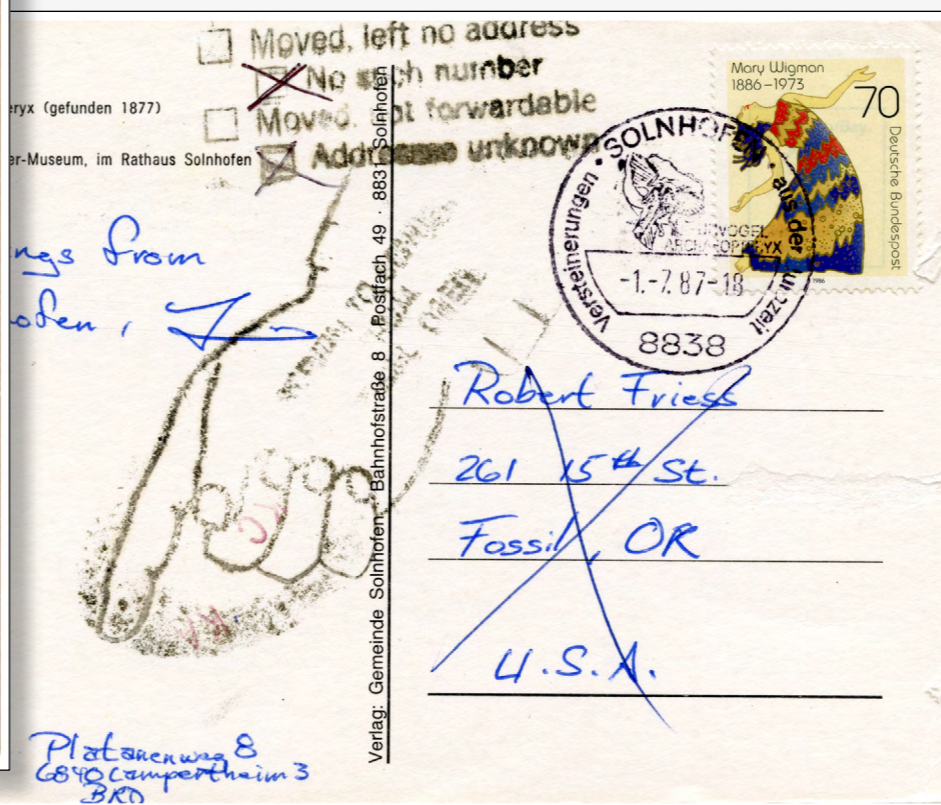 Moved, left no address
No such number
Moved, not forwardable
Addressee unknown
eryx (gefunden 1877)
er-Museum, im Rathaus Solnhofen
ngs from
ofen,
RETURN TO SENDER
Verlag: Gemeinde Solnhofen · Bahnhofstraße 8 · Postfach 49 · 883 Solnhofen
Mary Wigman
1886–1973
70
Deutsche Bundespost
1986
SOLNHOFEN · aus der Urzeit
Versteinerungen
URVOGEL
ARCHAEOPTERYX
-1.-7.87-18
8838
Robert Friess
261 15th St.
Fossil, OR
U.S.A.
Platanenweg 8
6840 Lampertheim 3
BRD